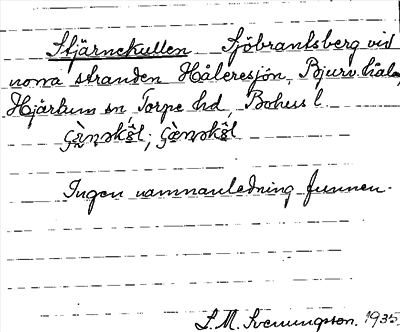 Stjärnekullen Sjöbrantsberg vid
norra stranden Håleresjön, Bjurv. håla,
Hjärtum sn, Torpe hd, Bohus l.
Ingen namnanledning funnen.
S. M. Svenungson. 1935.